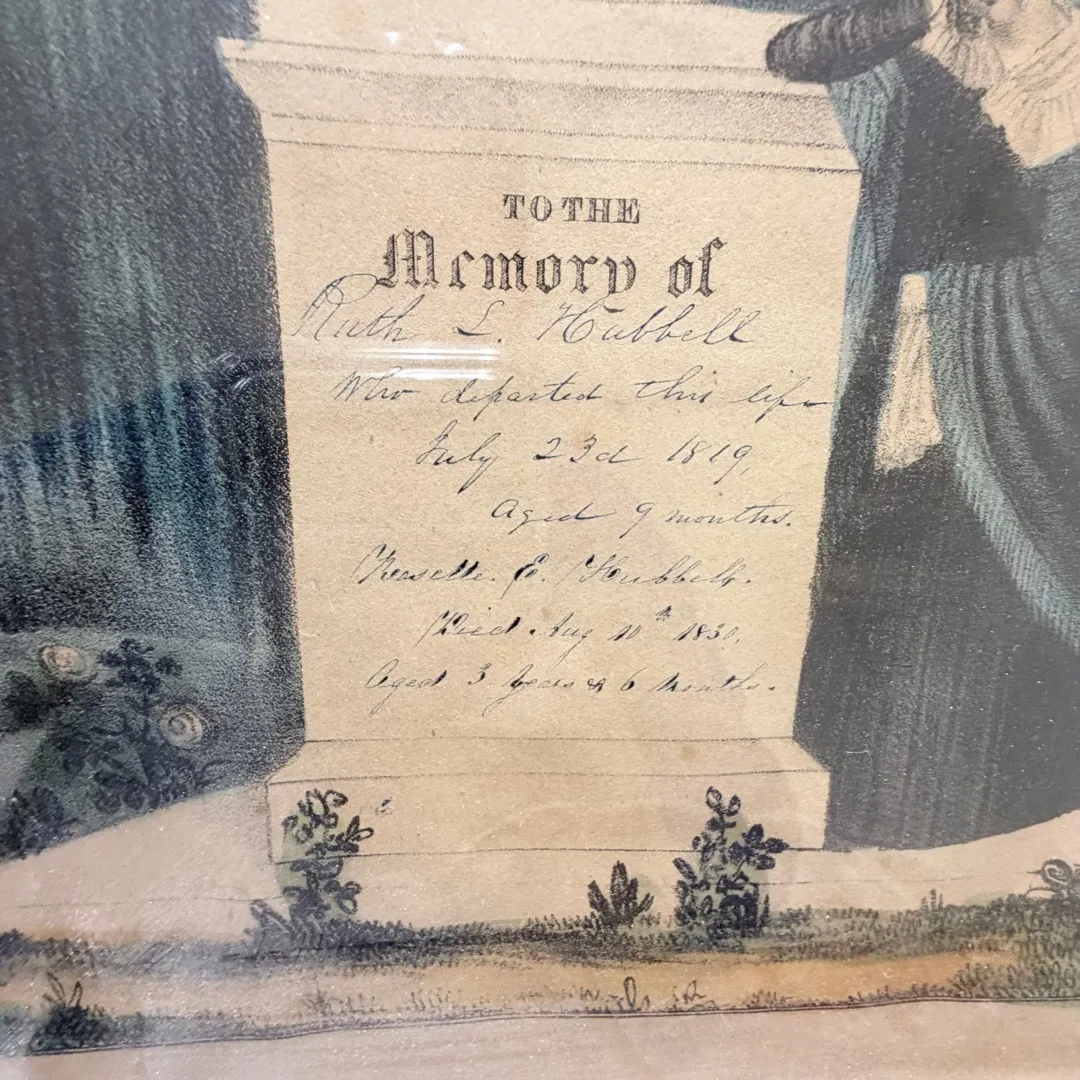 TO THE
Memory of
Ruth L. Hubbell
Who departed this life
July 23d 1819,
Aged 9 months.
E. Hubbell.
Died Aug 10th 1830.
Aged 3 Years & 6 Months.